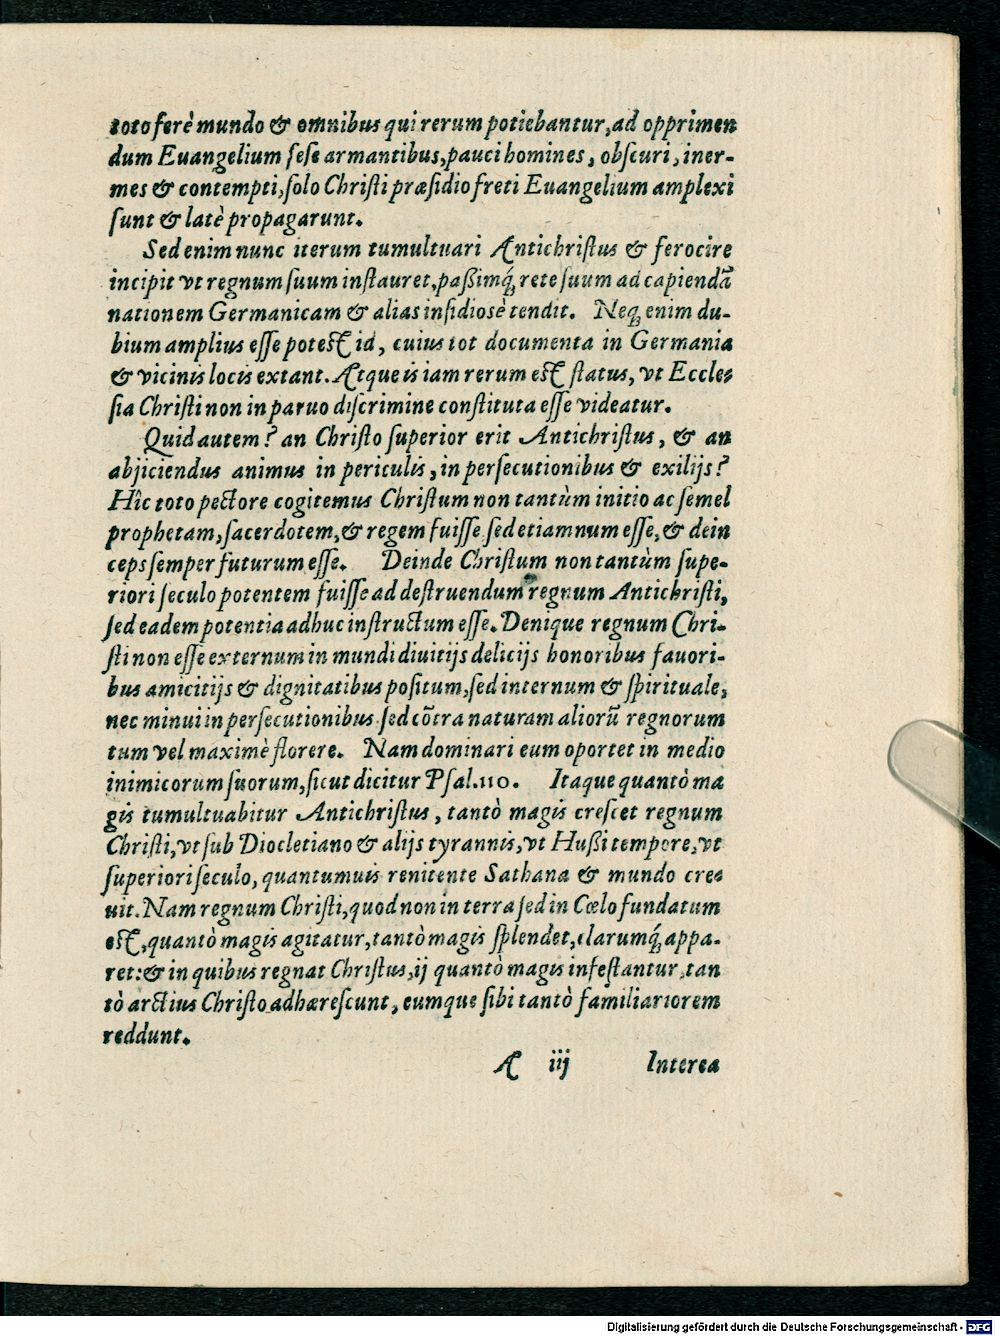 toto ferè mundo & omnibus qui rerum potiebantur, ad opprimen
dum Euangelium ſeſe armantibus, pauci homines, obſcuri, iner-
mes & contempti, ſolo Chriſti præſidio freti Euangelium amplexi
ſunt & latè propagarunt.
Sed enim nunc iterum tumultuari Antichriſtus & ferocire
incipit vt regnum ſuum inſtauret, paßimq́; rete ſuum ad capiendã
nationem Germanicam & alias inſidiosè tendit. Neq; enim du-
bium amplius eſſe poteſt id, cuius tot documenta in Germania
& vicinis locis extant. Atque is iam rerum eſt ſtatus, vt Eccle-
ſia Chriſti non in paruo diſcrimine conſtituta eſſe videatur.
Quid autem? an Chriſto ſuperior erit Antichriſtus, & an
abjiciendus animus in periculis, in perſecutionibus & exilijs?
Hîc toto pectore cogitemus Chriſtum non tantùm initio ac ſemel
prophetam, ſacerdotem, & regem fuiſſe ſed etiamnum eſſe, & dein
ceps ſemper futurum eſſe. Deinde Chriſtum non tantùm ſupe-
riori ſeculo potentem fuiſſe ad deſtruendum regnum Antichriſti,
ſed eadem potentia adhuc inſtructum eſſe. Denique regnum Chri-
ſti non eſſe externum in mundi diuitijs delicijs honoribus fauori-
bus amicitijs & dignitatibus poſitum, ſed internum & ſpirituale,
nec minui in perſecutionibus ſed cõtra naturam aliorũ regnorum
tum vel maximè florere. Nam dominari eum oportet in medio
inimicorum ſuorum, ſicut dicitur Pſal. 110. Itaque quantò ma
gis tumultuabitur Antichriſtus, tantò magis creſcet regnum
Chriſti, vt ſub Diocletiano & alijs tyrannis, vt Hußi tempore, vt
ſuperiori ſeculo, quantumuis renitente Sathana & mundo cre-
uit. Nam regnum Chriſti, quod non in terra ſed in Cœlo fundatum
eſt, quantò magis agitatur, tantò magis ſplendet, clarumq́; appa-
ret: & in quibus regnat Chriſtus, ij quantò magis infeſtantur, tan
tò arctius Chriſto adhæreſcunt, eumque ſibi tantò familiariorem
reddunt.
A iij Interea
Digitalisierung gefördert durch die Deutsche Forschungsgemeinschaft - DFG